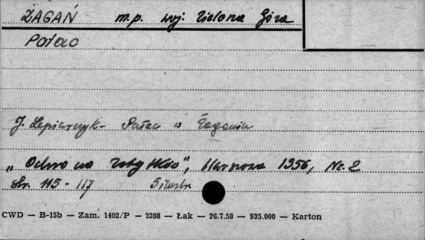 ŻAGAŃ m.p. woj: Zielona Góra
Pałac
J. Lepiarczyk - Pałac w Żaganiu
"Ochrona Zabytków", Warszawa 1956, Nr. 2
str. 113 - 117
CWD — B-15b — Zam. 1402/P — 2398 — Łak — 26.7.58 — 935.000 — Karton